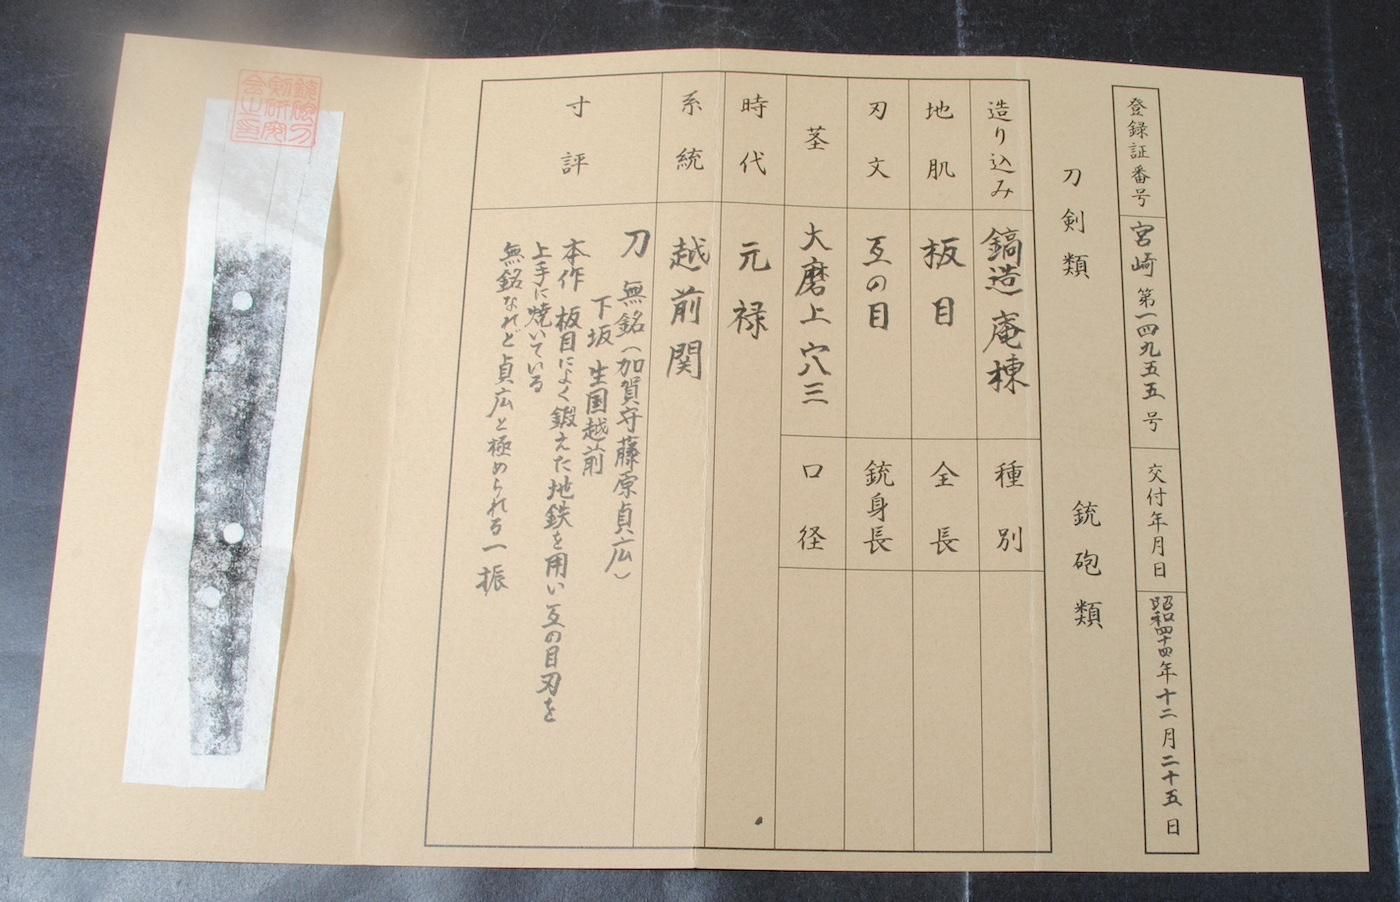 登録証番号 宮崎 第一四九五五号 交付年月日 昭和四十四年十二月二十五日
刀剣類 銃砲類
造り込み 鎬造庵棟 種別
地肌 板目 全長
刃文 互の目 銃身長
茎 大磨上穴三 口径
時代 元禄
系統 越前関
寸評
刀 無銘(加賀守藤原貞広)
下坂 生国越前
本作 板目によく鍛えた地鉄を用い互の目刃を
上手に焼いている
無銘なれど貞広と極められる一振